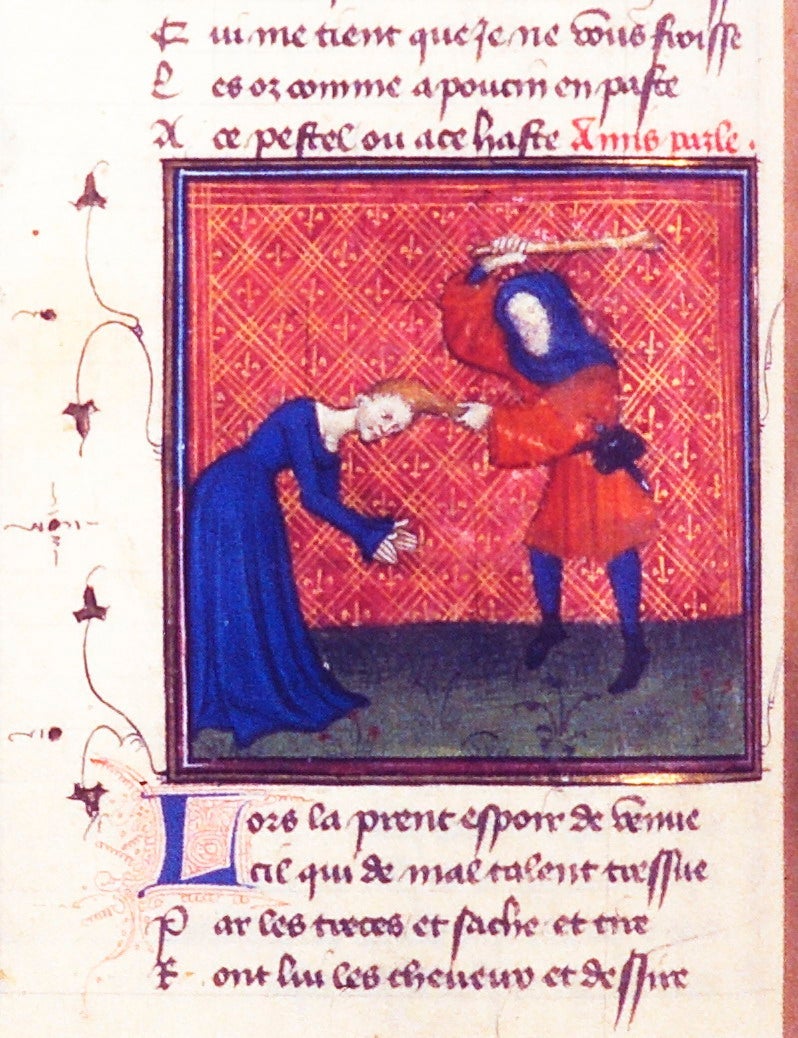 Q ui me tient que je ne vous froisse
L es oz comme a poucin en paste
A ce pestel ou a ce haste Amis parle.
Lors la prent espoir de venue
cil qui de mal talent tressue
P ar les treces et sache et tire
R ont lui les cheveux et dessire